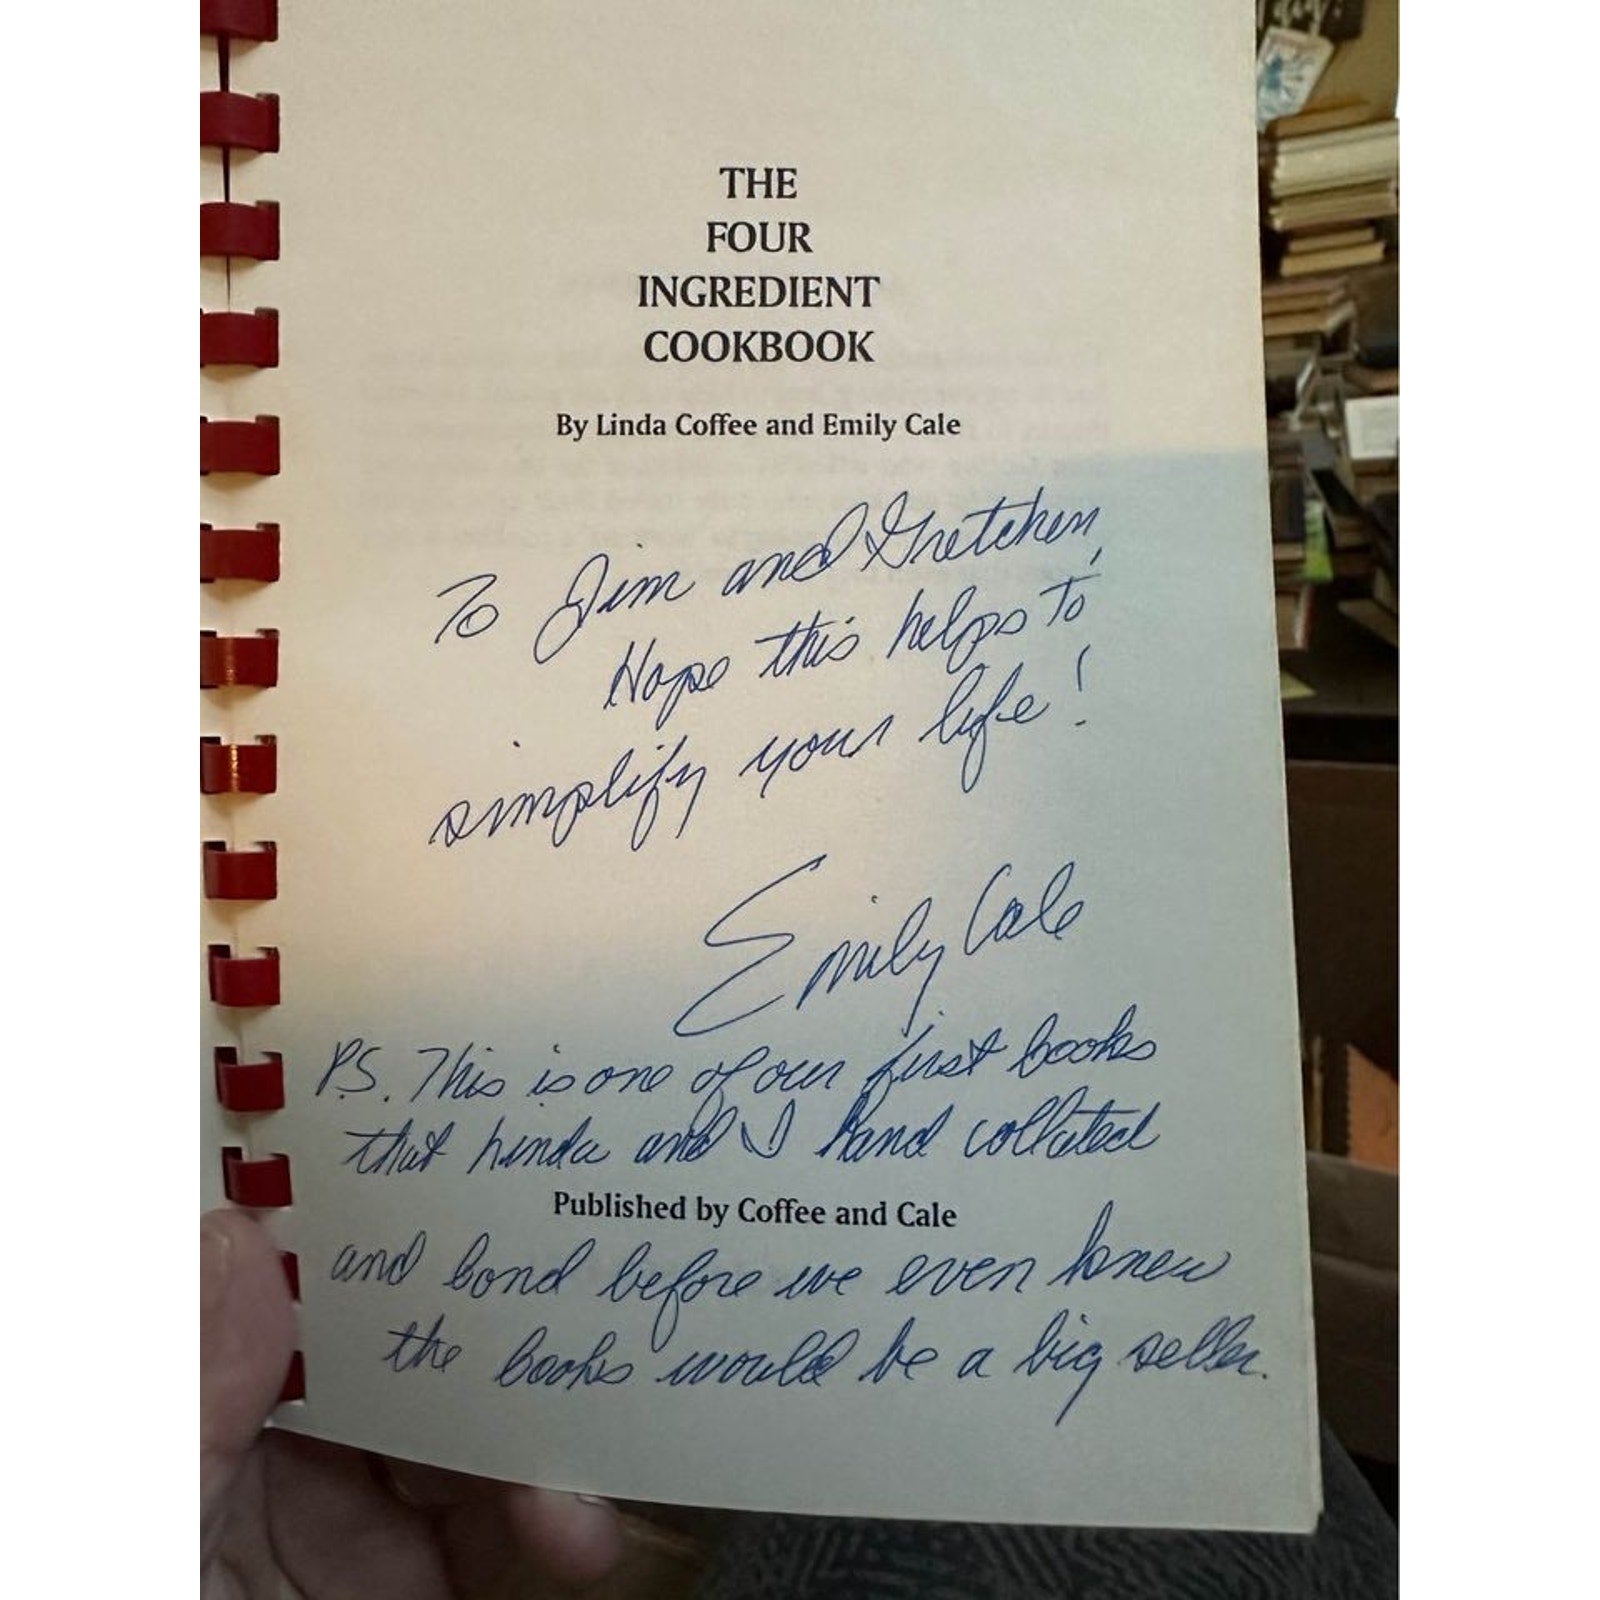 THE
FOUR
INGREDIENT
COOKBOOK
By Linda Coffee and Emily Cale
To Jim and Gretchen,
Hope this helps to
simplify your life!
Emily Cale
P.S. This is one of our first books
that Linda and I hand collated
Published by Coffee and Cale
and bond before we even knew
the books would be a big seller.